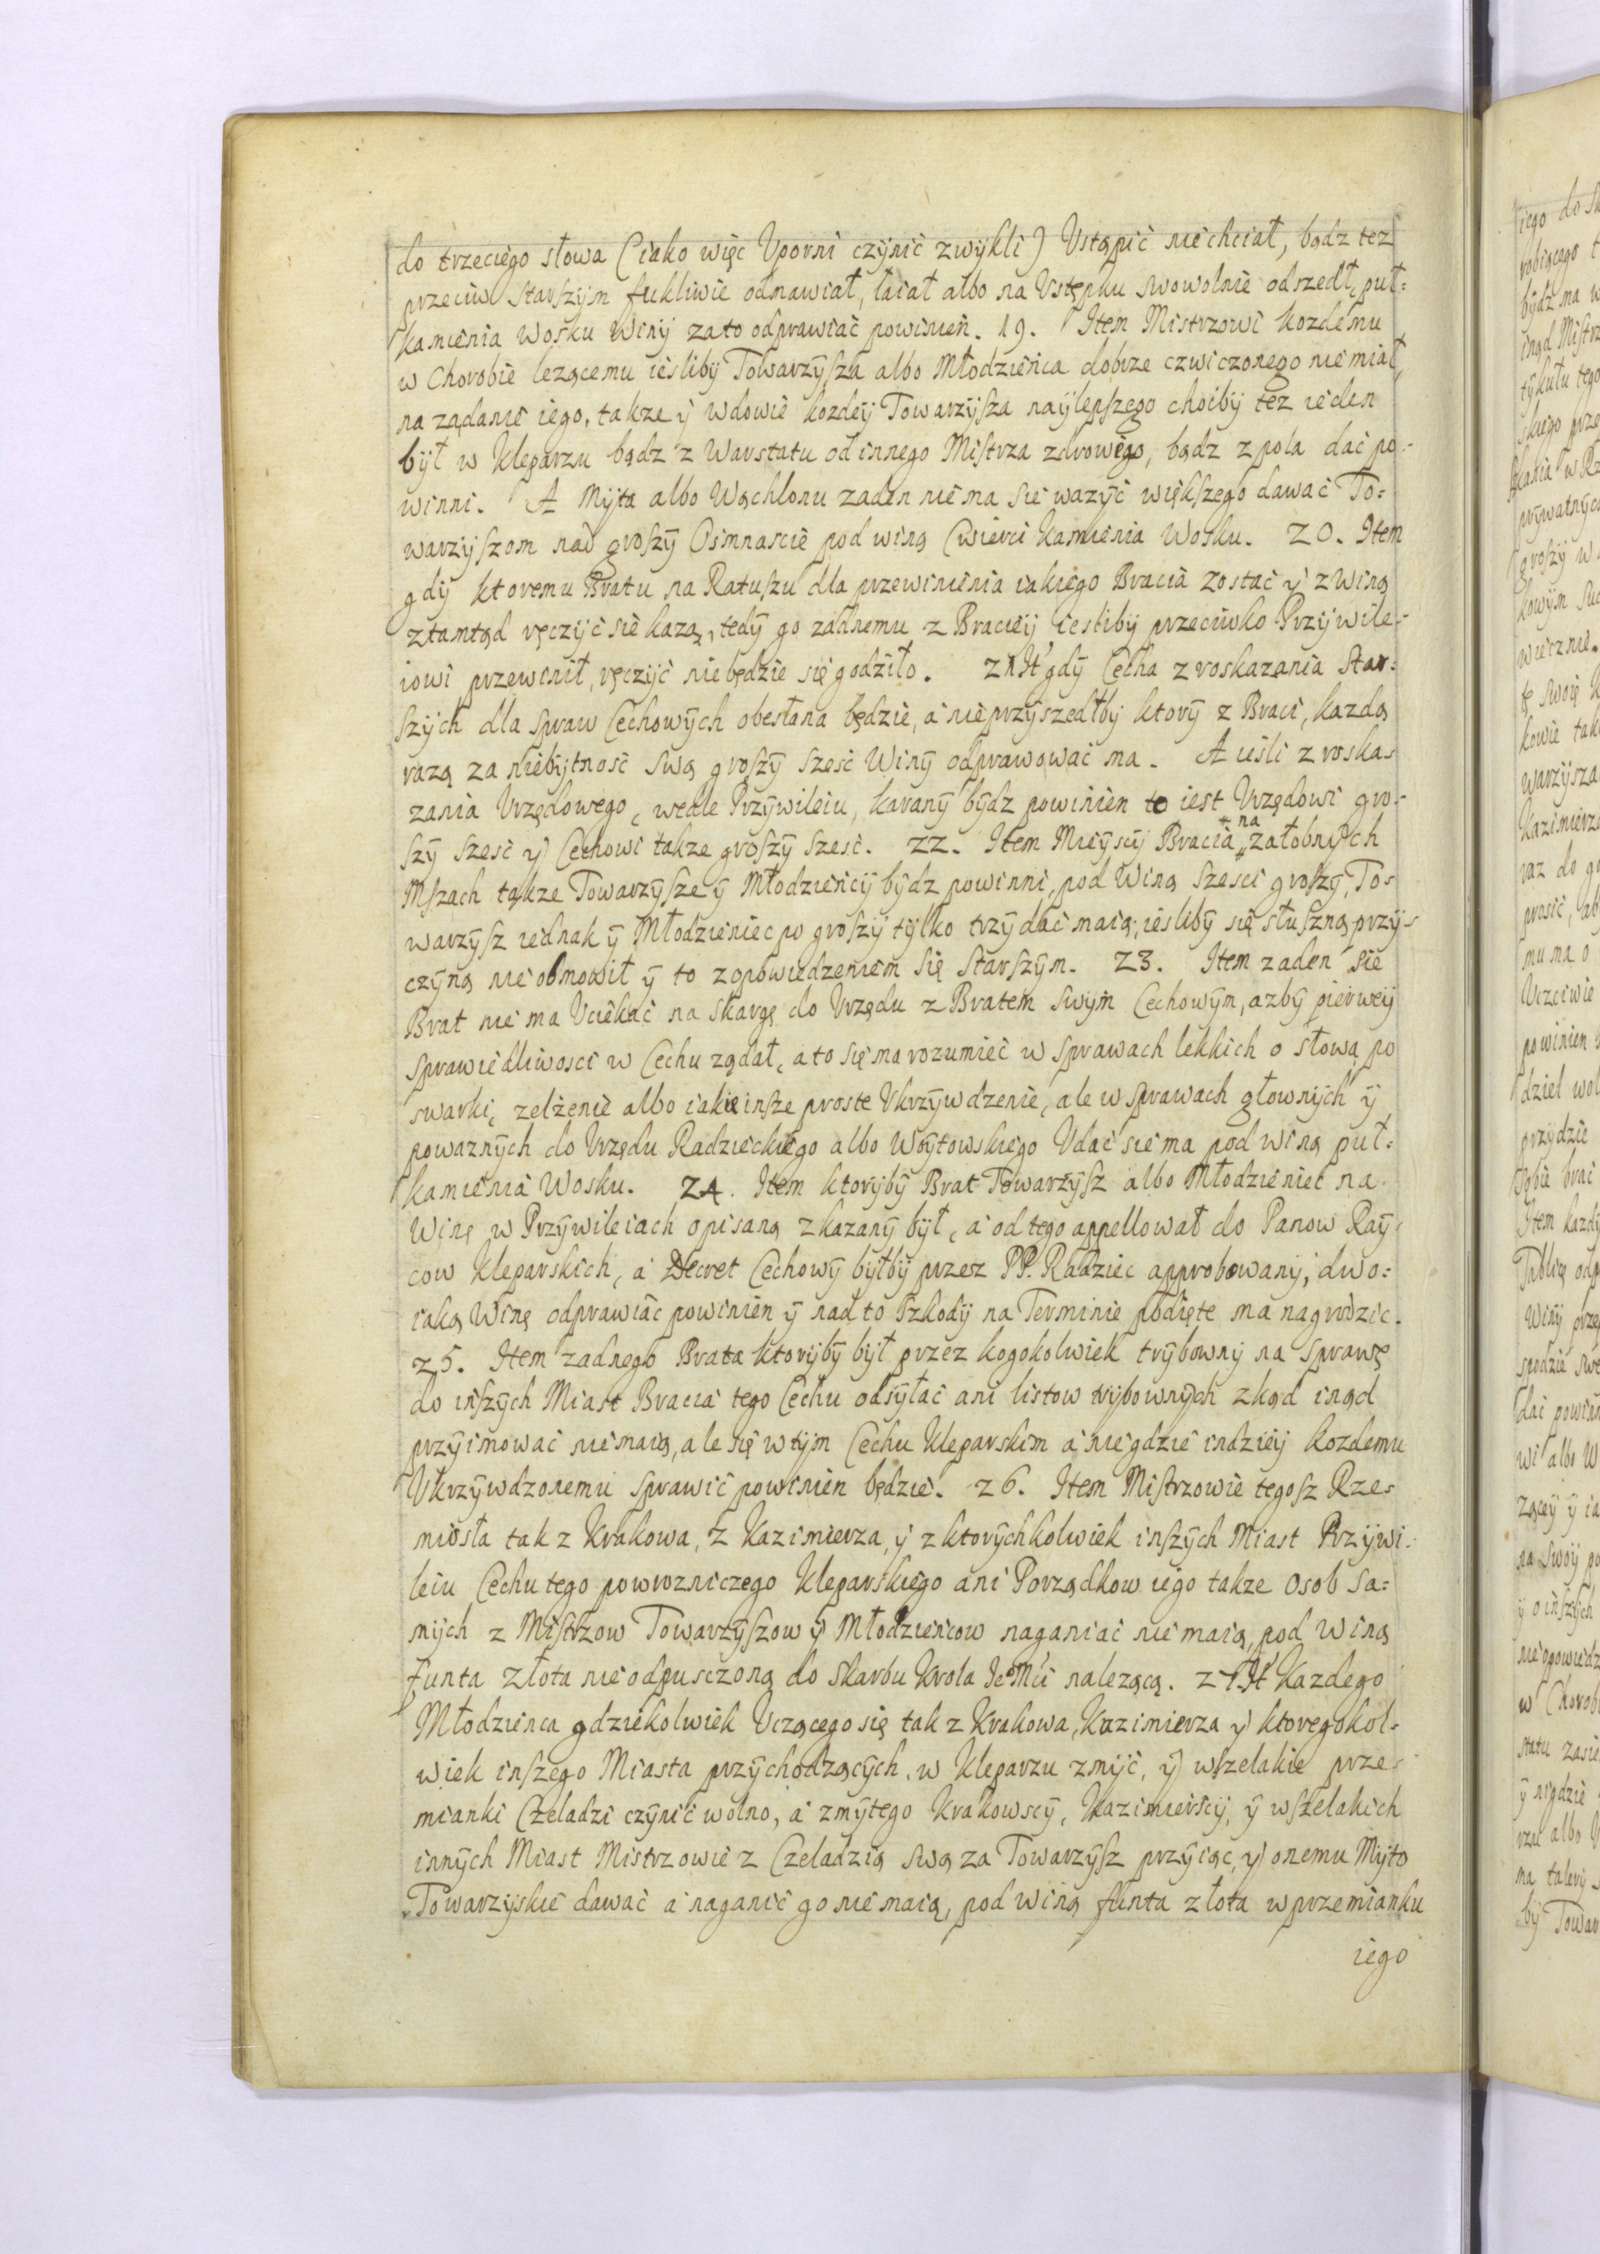 do trzeciego słowa (iako więc Vporni czynić zwykli) Vstąpić niechciał, bądz tez
przeciw Starszÿm fukliwie odmawiał, łaiał albo na Vstępku swowolnie odszedł, puł:
kamienia Wosku Winÿ zato odprawiać powinien. 19. Item Mistrzowi kozdemu
w Chorobie lezącemu iesliby Towarzÿsza albo Młodzienca dobrze czwiczonego niemiał,
na ządanie iego, takze ÿ wdowie kozdeÿ Towarzysza naÿlepszego choiby tez ieden
był w Kleparzu bądz z Warstatu od innego Mistrza zdrowego, bądz z pola dać po-
winni. A Mÿta albo Wochlonu zaden nie ma sie wazÿć większego dawać To:
warzÿszom nad groszÿ Osimnascie pod winą Cwierci Kamienia Wosku. 20. Item
gdÿ ktoremu Bratu na Ratuszu dla przewinienia iakiego Bracia zostać ÿ z Winą
ztamtąd ręczÿć sie kazą, tedÿ go zadnemu z Bracieÿ iesliby przeciwko Przÿwile-
iowi przewinił, ręczÿć niebędzie się godziło. 21 It gdÿ Cecha z roskazania Star:
szÿch dla spraw Cechowÿch obesłana będzie, a nieprzÿszedłby ktorÿ z Braci, kazdą
razą za niebÿtnosć swą groszÿ szesć Winÿ odprawować ma. A iesli z roska-
zania Vrzędowego, wedle Przÿwileiu, karanÿ bÿdz powinien to iest Vrzędowi gro-
szÿ szesć ÿ Cechowi takze groszÿ szesć. 22. Item Mieÿscÿ Bracia + na załobnÿch
Mszach takze Towarzÿsze ÿ Młodziencÿ bÿdz powinni, pod Winą szesci groszÿ, To-
warzÿsz iednak ÿ Młodzieniec po groszÿ tÿlko trzÿ dać maią, iesliby się słuszną przÿ-
czÿną nie obmowił ÿ to zopowiedzeniem się Starszÿm. 23. Item zaden sie
Brat nie ma Vciekać na skargę do Vrzędu z Bratem swÿm Cechowÿm, azbÿ pierweÿ
sprawiedliwosci w Cechu ządał, a to się ma rozumieć w sprawach lekkich o słowa po
swarki, zelżenie albo iakie insze proste Vkrzÿwdzenie, ale w sprawach głownÿch ÿ
powaznÿch do Vrzędu Radzieckiego albo Woÿtowskiego Vdać sie ma pod winą puł:
kamienia Wosku. 24. Item ktorÿbÿ Brat Towarzÿsz albo Młodzieniec na
Winę w Przÿwileiach opisaną zkazanÿ był, a od tego appellował do Panow Raÿ-
cow Kleparskich, a Decret Cechowÿ byłbÿ przez PP. Radziec approbowanÿ, dwo:
iaką Winę odprawiać powinien ÿ nad to Szkodÿ na Terminie podięte ma nagrodzić.
25. Item zadnego Brata ktorÿbÿ był przez kogokolwiek trÿbownÿ na Sprawę
do inszÿch Miast Bracia tego Cechu odsÿłać ani listow trÿbownÿch zkąd inąd
przÿimować nie maią, ale się w tÿm Cechu Kleparskim a nie gdzie indzieÿ kozdemu
Vkrzÿwdzonemu sprawić powinien będzie. 26. Item Mistrzowie tegosz Rze-
miosła tak z Krakowa, z Kazimierza, ÿ z ktorÿchkolwiek inszÿch Miast Przÿwi-
leiu Cechu tego powrozniczego Kleparskiego ani Porządkow iego takze Osob sa:
mÿch z Mistrzow Towarzÿszow ÿ Młodziencow naganiać nie maią, pod winą
funta złota nieodpusczoną do Skarbu Krola Je° Mci nalezącą. 27. It Kazdego
Młodzienca gdziekolwiek Vczącego się tak z Krakowa, Kazimierza ÿ ktoregokol-
wiek inszego Miasta przÿchodzącÿch, w Kleparzu zmÿć, ÿ wszelakie prze-
mianki Czeladzi czÿnić wolno, a zmÿtego Krakowscÿ, Kazimierscÿ, ÿ wszelakich
innÿch Miast Mistrzowie z Czeladzią swą za Towarzÿsz przÿiąć, ÿ onemu Mÿto
Towarzÿskie dawać a naganić go nie maią, pod winą funta złota w przemianku
iego